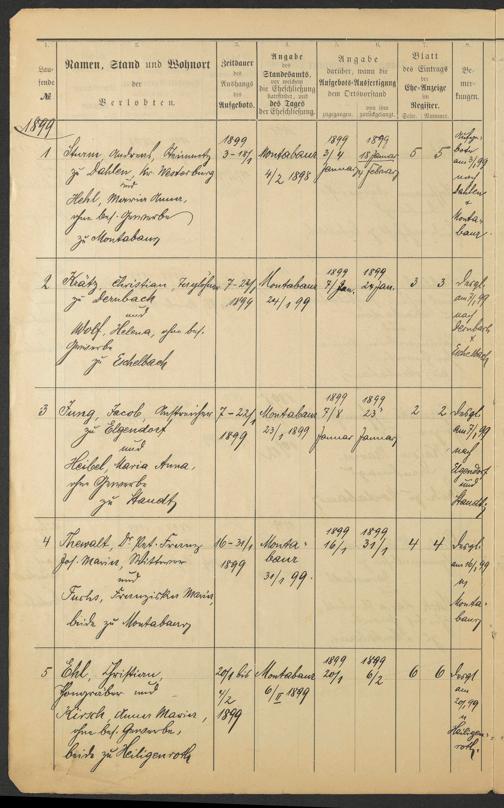 1. 2. 3. 4. 5. 6. 7. 8.
Lau-
fende
№
Namen, Stand und Wohnort
der
Verlobten.
Zeitdauer
des
Aushangs
des
Aufgebots.
Angabe
des
Standesamts,
vor welchem
die Eheschließung
stattfindet, und
des Tages
der Eheschließung.
Angabe
darüber, wann die
Aufgebots-Ausfertigung
dem Ortsvorstand
zugegangen.
von ihm
zurückgelangt.
Blatt
des Eintrags
der
Ehe-Anzeige
im
Register.
Seite. Nummer.
Be-
mer-
kungen.
1899
1
Sturm, Andreas, Steinmetz
zu Dahlen, Kr Westerburg
und
Hehl, Maria Anna,
ohne bes. Gewerbe
zu Montabaur
1899
3-18/1
Montabaur
4/2 1898
1899
3/4
Januar
1899
18 Januar
Februar
5 5
am 3/1 99
nach
Dahlen
+
Monta-
baur
2
Krätz, Christian, Taglöhner
zu Dernbach
und
Wolf, Helena, ohne bes.
Gewerbe
zu Eschelbach
7-22/1
1899
Montabaur
24/1 99
1899
7/ Jan.
1899
24 Jan.
3 3
Desgl.
am 7/1 99
nach
Dernbach
+
Eschelbach
3
Jung, Jacob, Anstreicher
zu Elgendorf
und
Heibel, Maria Anna,
ohne Gewerbe
zu Staudt
7-22/1
1899
Montabaur
23/1 1899
1899
7/8
Januar
1899
23
Januar
2 2
Desgl.
am 7/1 99
nach
Elgendorf
und
Staudt
4
Thewalt, Dr Pet. Franz
Jos. Maria, Wittwer
und
Fuchs, Franziska Maria,
beide zu Montabaur
16-31/1
1899
Monta-
baur
31/1 99.
1899
16/1
1899
31/1
4 4
Desgl.
am 16/1 99
Monta-
baur
5
Ehl, Christian,
und
Kirsch, Anna Maria,
ohne bes. Gewerbe,
beide zu Heiligenroth
20/1 bis
4/2
1899
Montabaur
6/II 1899
1899
20/1
1899
6/2
6 6
Desgl.
am
20/1 99
Heiligen-
roth.